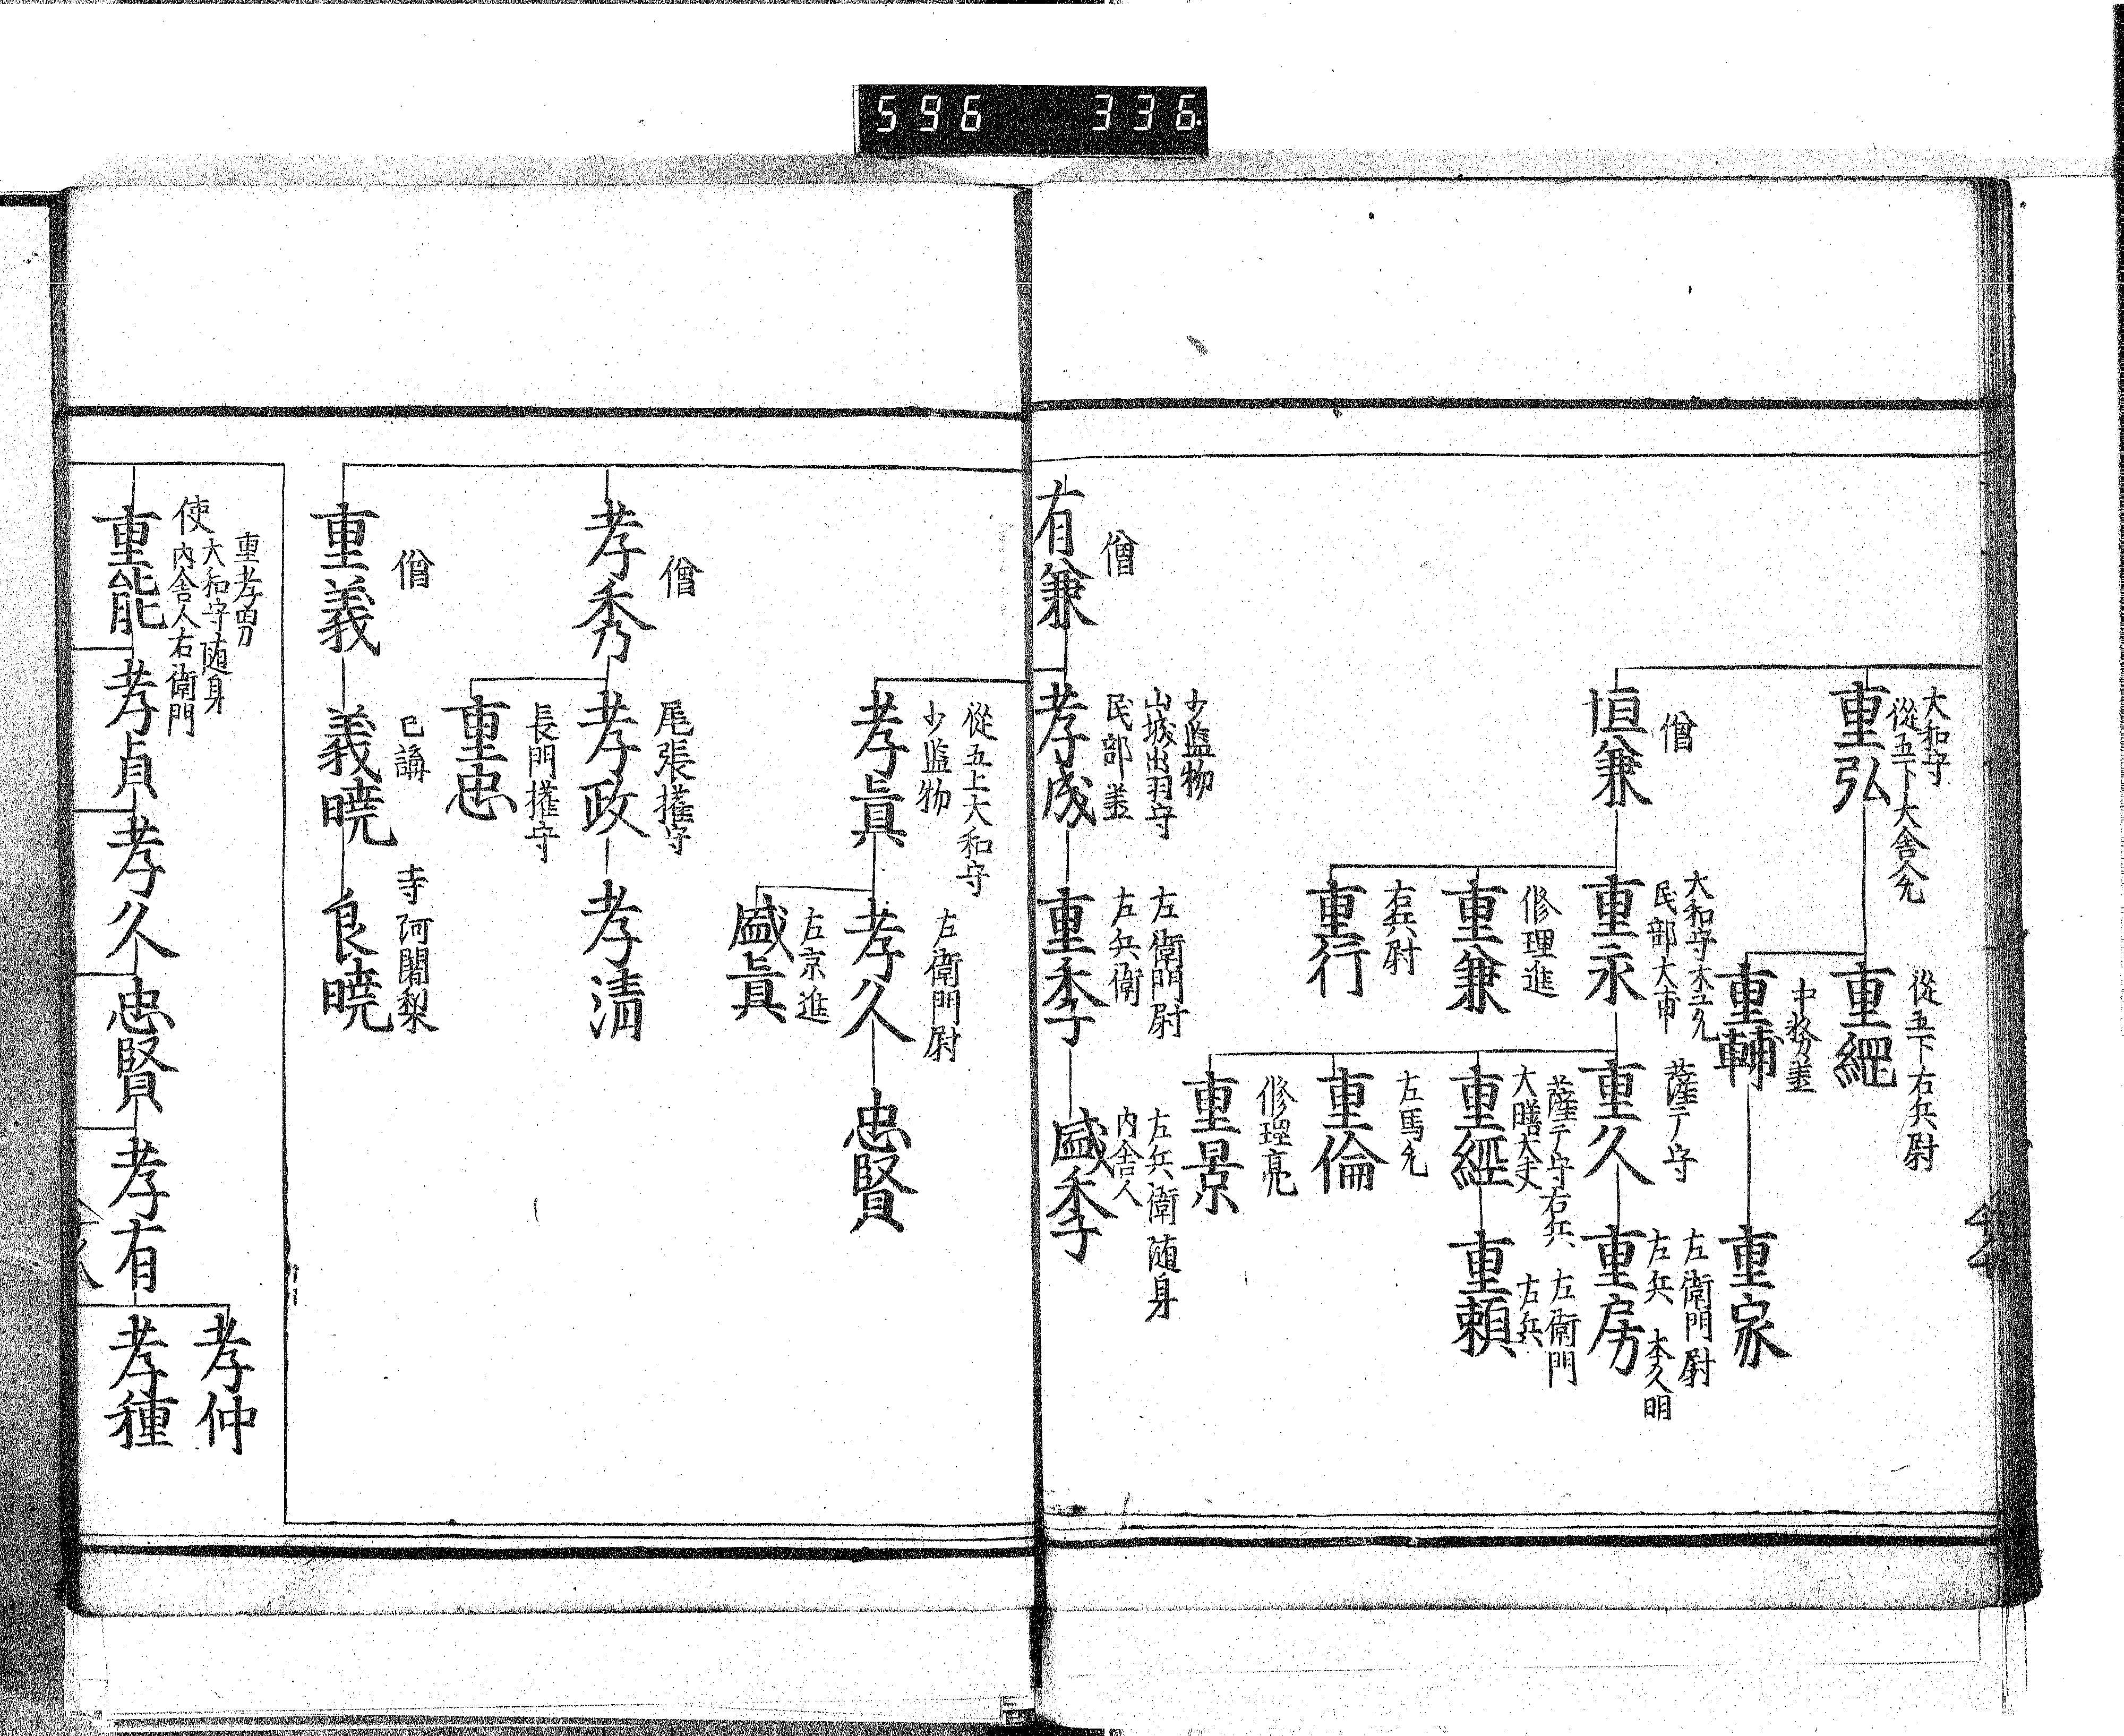 596 336
大和守
從五下大舎人允
重弘
從五下右兵尉
重經
中務丞
重輔
重家
僧
垣兼
大和守木工允
民部大甫
重永
薩广守
重久
左衛門尉
左兵 本久明
重房
薩广守右兵
大膳大夫
重經
左衛門
右兵
重頼
修理進
重兼
左馬允
重倫
右兵尉
重行
修理亮
重景
僧
有兼
少監物
山城出羽守
民部丞
孝成
左衛門尉
左兵衛
重季
左兵衛随身
内舎人
盛季
從五上大和守
少監物
孝眞
左衛門尉
孝久
忠賢
左京進
盛眞
僧
孝秀
尾張権守
孝政
孝清
長門権守
重忠
僧
重義
已講
義暁
寺阿闍梨
良暁
重孝男
使 大和守随身
内舎人右衛門
重能
孝貞
孝久
忠賢
孝有
孝仲
孝種